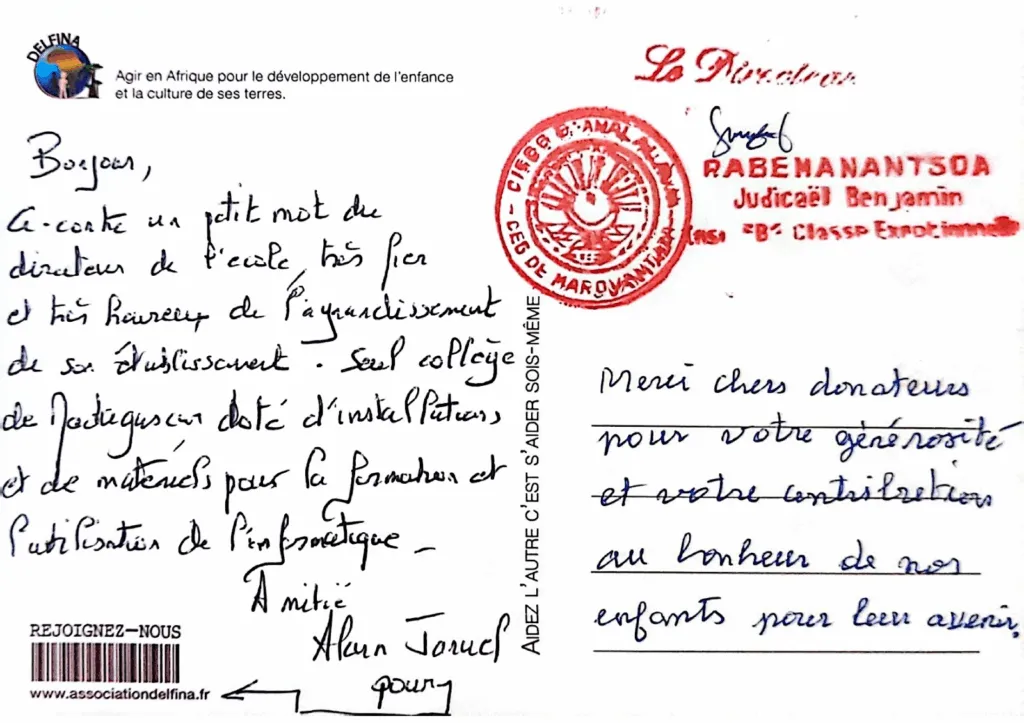 DELFINA
Agir en Afrique pour le développement de l'enfance
et la culture de ses terres.
Bonjour,
Ci-contre un petit mot du
directeur de l'école, très fier
et très heureux de l'agrandissement
de son établissement. Seul collège
de Madagascar doté d'installations
et de matériels pour la formation et
l'utilisation de l'informatique _
Amitié
Alain
pour
REJOIGNEZ-NOUS
www.associationdelfina.fr
AIDEZ L'AUTRE C'EST S'AIDER SOIS-MÊME
Le Directeur
CEG DE MAROVANTAZA
RABENANANTSOA
Judicaël Benjamin
"B" Classe
Merci chers donateurs
pour votre générosité
et votre contribution
au bonheur de nos
enfants pour leur avenir.